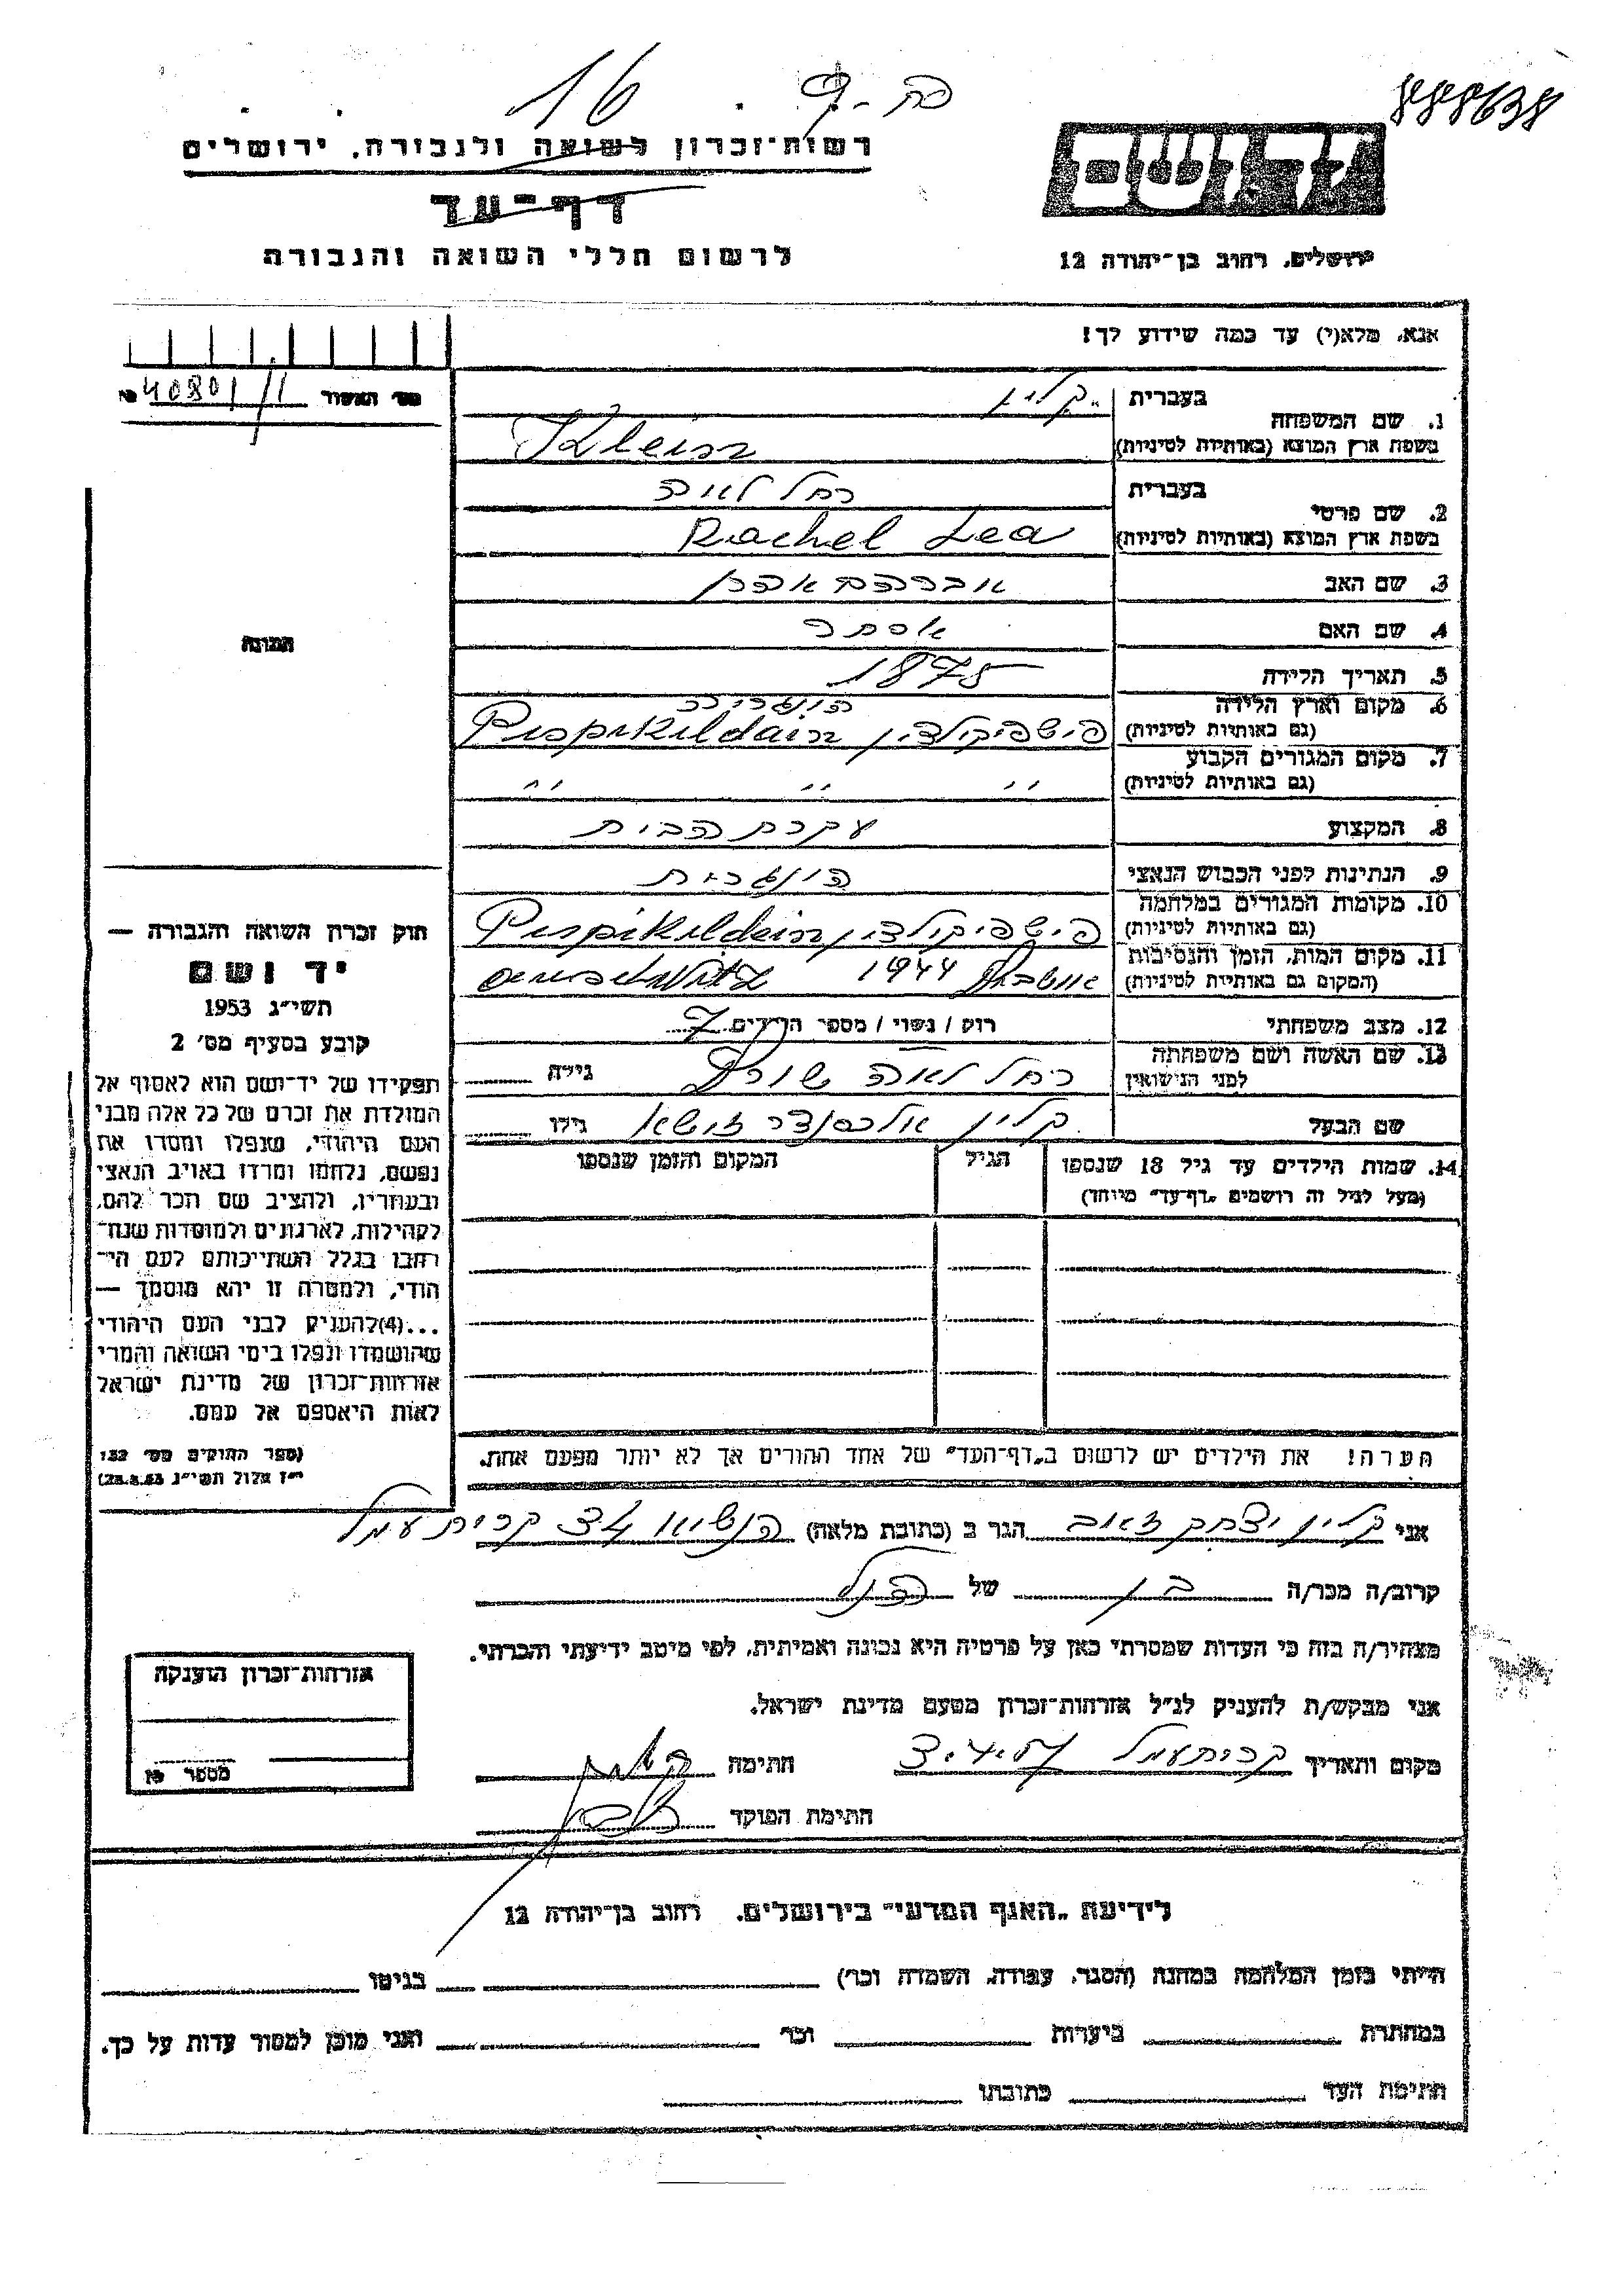 16 פה - 9 888638
רשות־זכרון לשואה ולגבורה, ירושלים
יד ושם
דף־עד
לרשום חללי השואה והגבורה
ירושלים, רחוב בן־יהודה 12
אנא, מלא(י) עד כמה שידוע לך!
מס' האשור № 40801/1
1. שם המשפחה בעברית קליין
בשפת ארץ המוצא (באותיות לטיניות) Klein
2. שם פרטי בעברית רחל לאה
בשפת ארץ המוצא (באותיות לטיניות) Rachel Lea
3. שם האב אברהם אהרן
4. שם האם אסתר
5. תאריך הלידה 1875
6. מקום וארץ הלידה הונגריה
(גם באותיות לטיניות) פישפיקלדין Pispikildain
7. מקום המגורים הקבוע
(גם באותיות לטיניות) " " "
8. המקצוע עקרת הבית
9. הנתינות לפני הכבוש הנאצי הונגרית
10. מקומות המגורים במלחמה
(גם באותיות לטיניות) פישפיקלדין Pispikildein
11. מקום המות, הזמן והנסיבות
(המקום גם באותיות לטיניות) 1944
12. מצב משפחתי רווק / נשוי / מספר הילדים 7
13. שם האשה ושם משפחתה
לפני הנישואין רחל לאה גילה
שם הבעל קליין אלכסנדר זושא גילו
14. שמות הילדים עד גיל 18 שנספו הגיל המקום והזמן שנספו
(מעל לגיל זה רושמים „דף־עד" מיוחד)
הערה! את הילדים יש לרשום ב„דף־העד" של אחד ההורים אך לא יותר מפעם אחת.
תמונה
חוק זכרון השואה והגבורה —
יד ושם
תשי"ג 1953
קובע בסעיף מס' 2
תפקידו של יד־ושם הוא לאסוף אל
המולדת את זכרם של כל אלה מבני
העם היהודי, שנפלו ומסרו את
נפשם, נלחמו ומרדו באויב הנאצי
ובעוזריו, ולהציב שם וזכר להם,
לקהילות, לארגונים ולמוסדות שנח־
רבו בגלל השתייכותם לעם הי־
הודי, ולמטרה זו יהא מוסמך —
...(4)להעניק לבני העם היהודי
שהושמדו ונפלו בימי השואה והמרי
אזרחות־זכרון של מדינת ישראל
לאות היאספם אל עמם.
(ספר החוקים מס' 132
י"ז אלול תשי"ג 28.8.53)
אני קליין יצחק זאב הגר ב (כתובת מלאה) הנשיא קרית עמל
קרוב/ה מכר/ה בן של הנ"ל
מצהיר/ה בזה כי העדות שמסרתי כאן על פרטיה היא נכונה ואמיתית, לפי מיטב ידיעתי והכרתי.
אני מבקש/ת להעניק לנ"ל אזרחות־זכרון מטעם מדינת ישראל.
מקום ותאריך קרית עמל חתימה
חתימת הפוקד
אזרחות־זכרון הוענקה
מספר №
לידיעת „האגף המדעי" בירושלים, רחוב בן־יהודה 12
הייתי בזמן המלחמה במחנה (הסגר, עבודה, השמדה וכו') בגיטו
במחתרת ביערות וכו' ואני מוכן למסור עדות על כך.
חתימת העד כתובתו